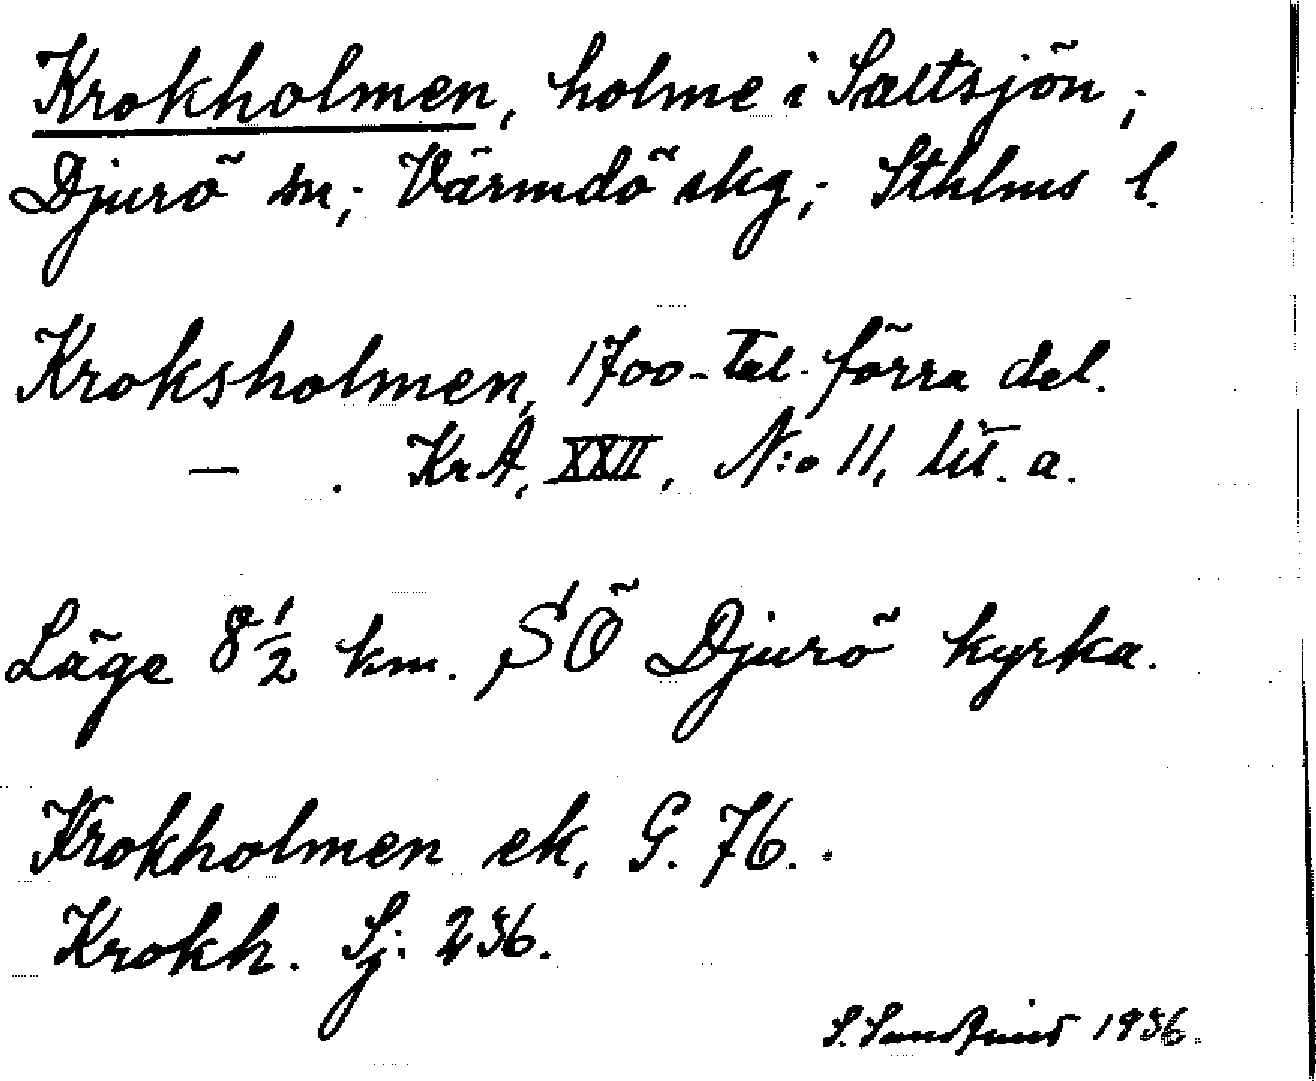 Krokholmen, holme i Saltsjön;
Djurö sn; Värmdö skg; Sthlms l.
Kroksholmen, 1700-tal. förra del.
— . KrA, XXII, N:o 11, lit. a.
Läge 8 1/2 km. SÖ Djurö kyrka.
Krokholmen ek, G. 76.
Krokh. Sj: 236.
S. 1936.